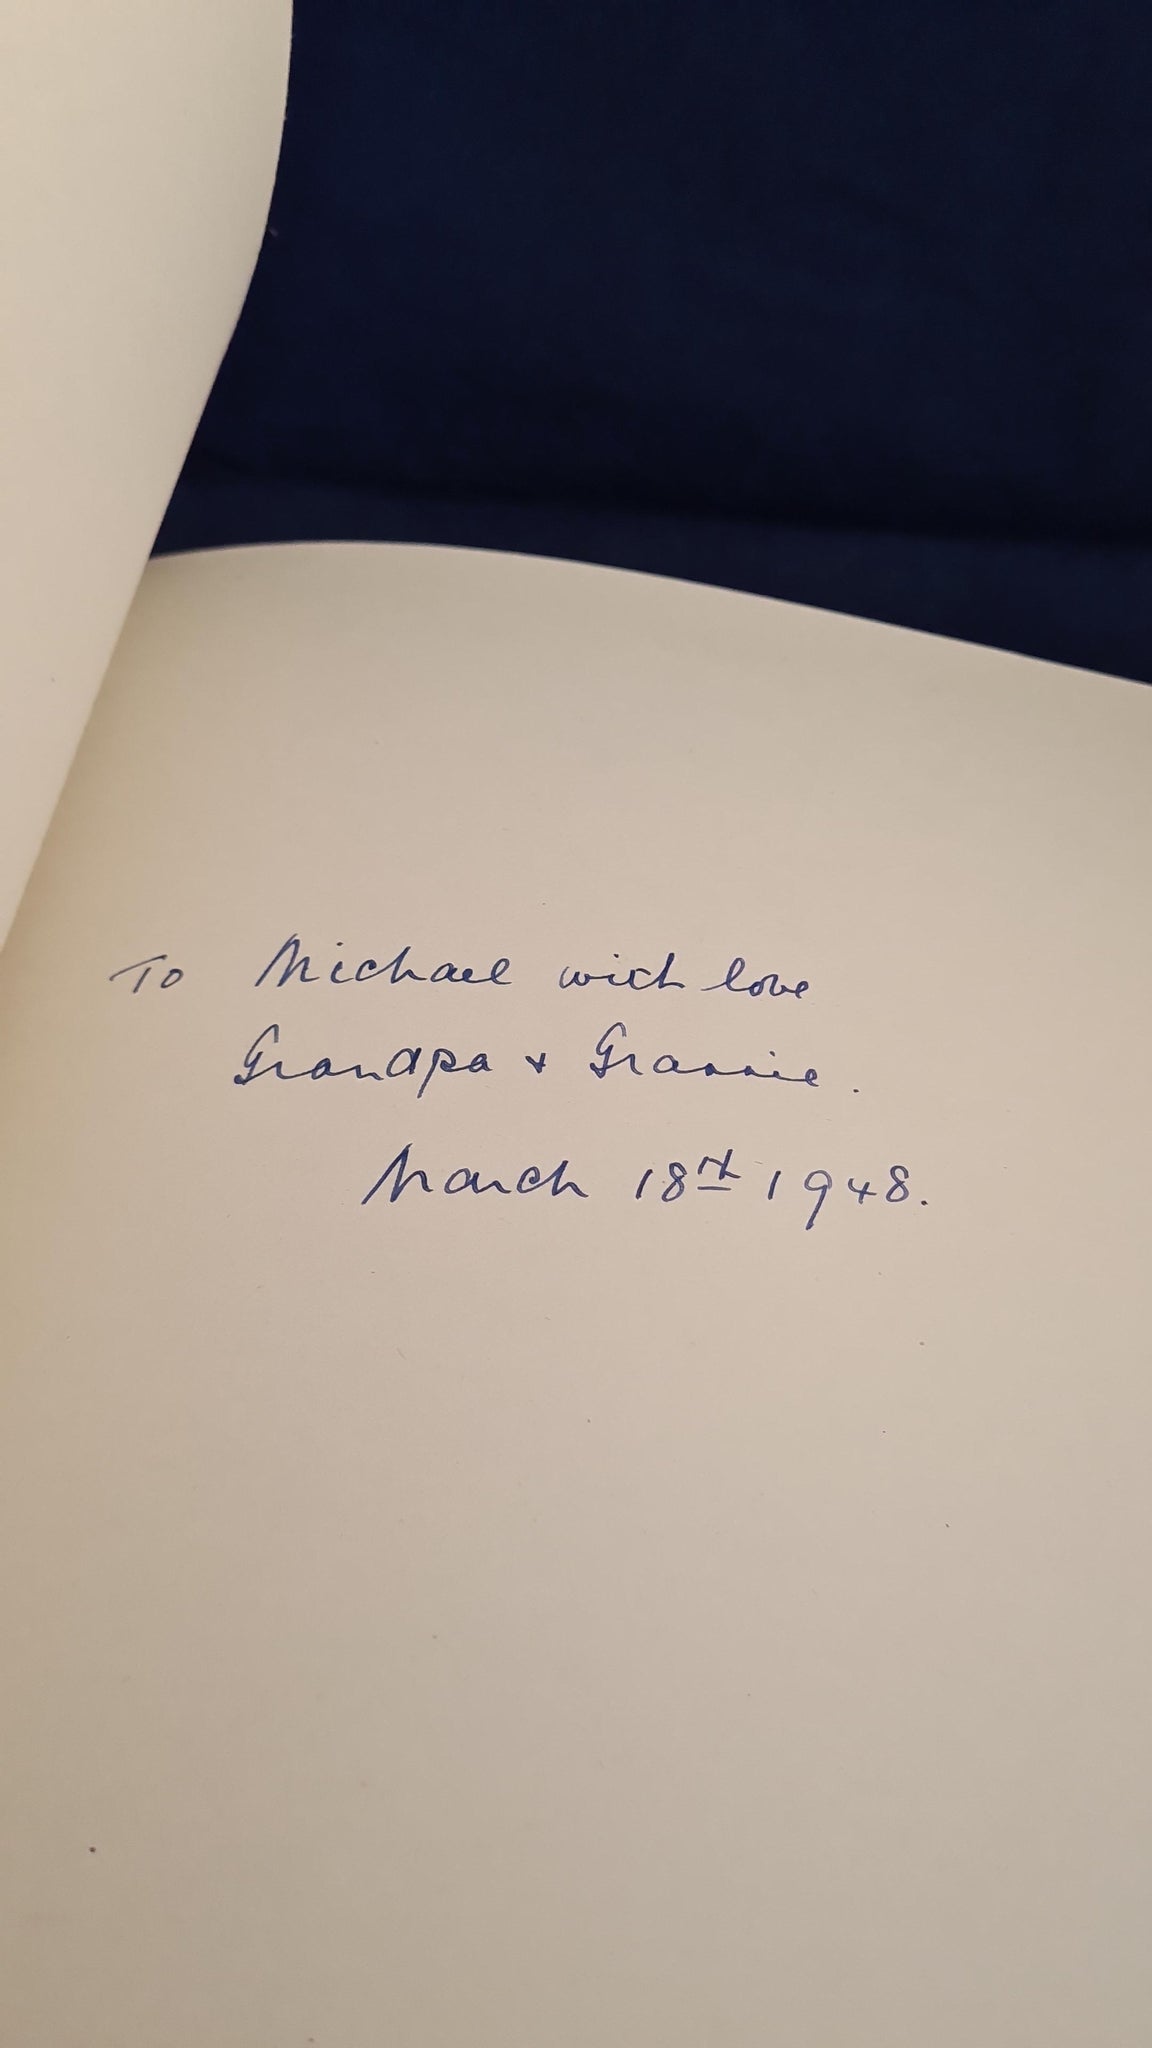 To Michael with love
Grandpa + Grannie.
March 18th 1948.